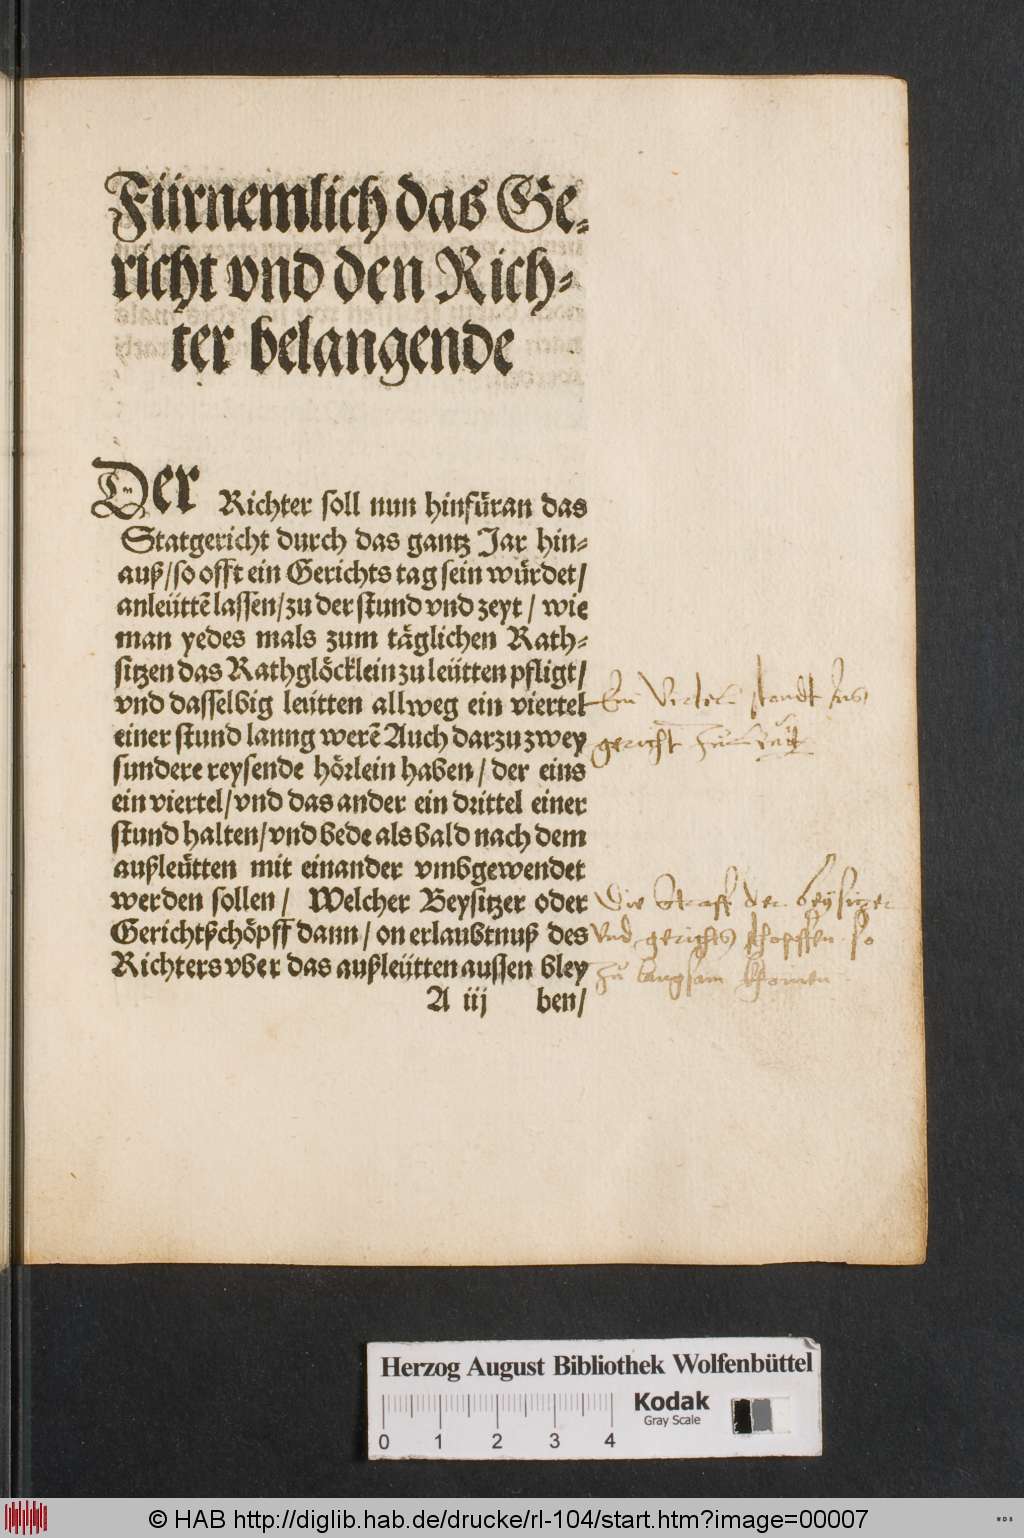 Fürnemlich das Ge-
richt vnd den Rich-
ter belangende
Der Richter soll nun hinfüran das
Statgericht durch das gantz Jar hin-
auß/so offt ein Gerichts tag sein würdet/
anleüttē lassen/zu der stund vnd zeyt/ wie
man yedes mals zum täglichen Rath-
sitzen das Rathglöcklein zu leütten pfligt/
vnd dasselbig leütten allweg ein viertel
einer stund lanng werē Auch darzu zwey
sundere reysende hörlein haben/ der eins
ein viertel/vnd das ander ein drittel einer
stund halten/vnd bede als bald nach dem
außleütten mit einander vmbgewendet
werden sollen/ Welcher Beysitzer oder
Gerichtßchöpff dann/on erlaubtnuß des
Richters vber das außleütten aussen bley
A iij ben/
Ein Viertel stundt Ins
gericht
Die Straff der beysitzer
Vnd gerichts schopffen so
zu langsam khomen
Herzog August Bibliothek Wolfenbüttel
Kodak
Gray Scale
0 1 2 3 4
© HAB http://diglib.hab.de/drucke/rl-104/start.htm?image=00007